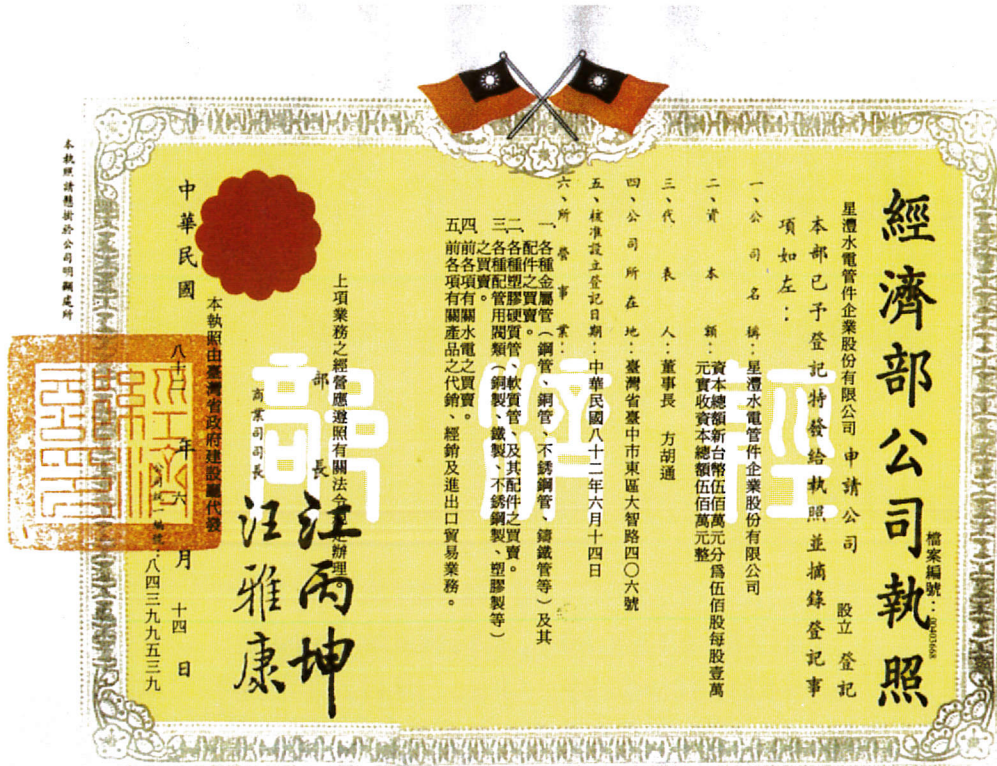 經濟部公司執照
檔案編號：00403668
星灃水電管件企業股份有限公司 申請公司 設立 登記
本部已予登記特發給執照並摘錄登記事
項如左：
一、公司名稱：星灃水電管件企業股份有限公司
二、資本額：資本總額新台幣伍佰萬元分爲伍佰股每股壹萬
元實收資本總額伍佰萬元整
三、代表人：董事長 方胡通
四、公司所在地：臺灣省臺中市東區大智路四〇六號
五、核准設立登記日期：中華民國八十二年六月十四日
六、所營事業：
一、各種金屬管（鋼管、銅管、不銹鋼管、鑄鐵管等）及其
配件之買賣。
二、各種塑膠硬質管、軟質管、及其配件之買賣。
三、各種配管用閥類（銅製、鐵製、不銹鋼製、塑膠製等）
之買賣。
四、前各項有關水電之買賣。
五、前各項有關產品之代銷、經銷及進出口貿易業務。
上項業務之經營應遵照有關法令規定辦理。
部長 江丙坤
商業司司長 汪雅康
本執照由臺灣省政府建設廳代發
中華民國 八十 年 六 月 十四 日
公司統一編號：八四三九九五三九
本執照請懸掛於公司明顯處所
經濟部